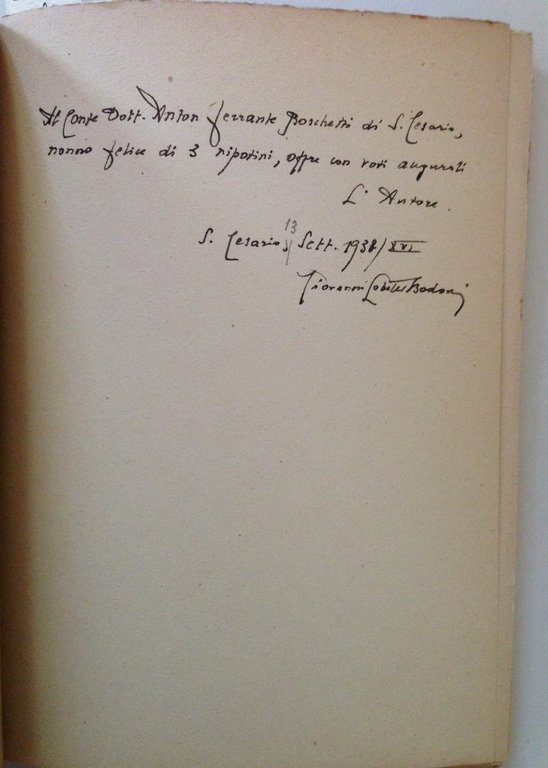 Al Conte Dott. Anton Ferrante Boschetti di S. Cesario,
nonno felice di 3 nipotini, offre con voti augurali
L'Autore.
S. Cesario, 13 Sett. 1938/XVI
Giovanni Bodoni